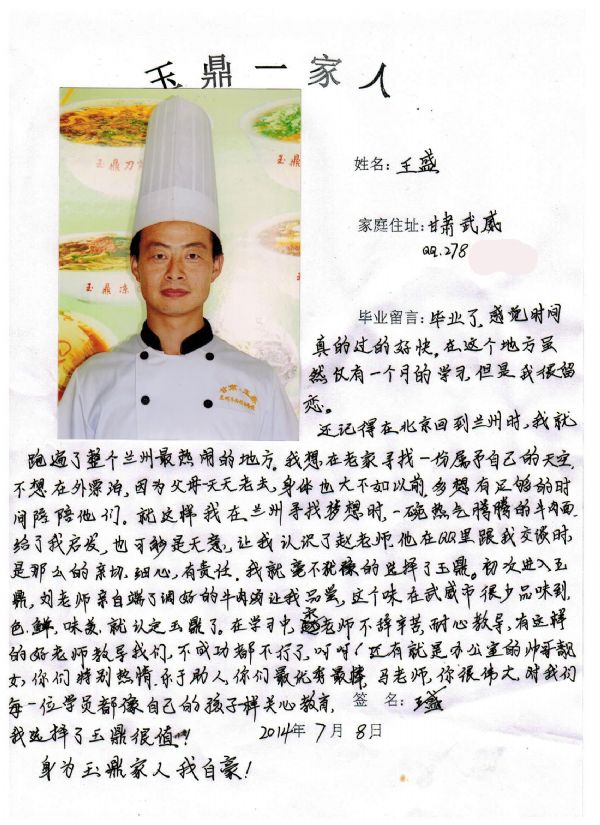 玉鼎一家人
玉鼎刀
玉鼎凉
姓名：王盛
家庭住址：甘肃武威
QQ.278
毕业留言：毕业了，感觉时间
真的过的好快。在这个地方虽
然仅有一个月的学习，但是我很留
恋。
还记得在北京回到兰州时，我就
跑遍了整个兰州最热闹的地方。我想在老家寻找一份属于自己的天空，
不想在外漂泊，因为父母天天老去，身体也大不如以前，多想有足够的时
间陪陪他们。就这样我在兰州寻找梦想时，一碗热气腾腾的牛肉面
给了我启发，也可能是天意，让我认识了赵老师，他在QQ里跟我交谈时，
是那么的亲切，细心，有责任。我就毫不犹豫的选择了玉鼎。初次进入玉
鼎，刘老师亲自端了调好的牛肉汤让我品尝，这个味在武威市很少品味到，
色鲜，味美，就认定玉鼎了。在学习中，老师不辞辛苦，耐心教导，有这样
的好老师教导我们，不成功都不行了，呵呵！还有就是办公室的帅哥靓
女，你们特别热情，乐于助人，你们最优秀最棒，马老师，你很伟大，对我们
每一位学员都像自己的孩子样关心教育，
签 名：王盛
我选择了玉鼎很值！
2014年7月8日
身为玉鼎家人我自豪！